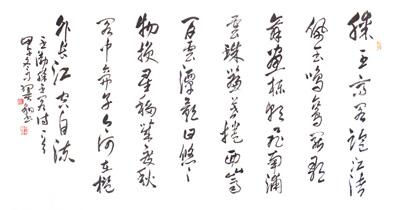 滕王高阁临江渚
佩玉鸣鸾罢歌
舞画栋朝飞南浦
云珠帘暮卷西山雨
闲云潭影日悠々
物换星移几度秋
阁中帝子今何在槛
外长江空自流
王勃滕王阁诗